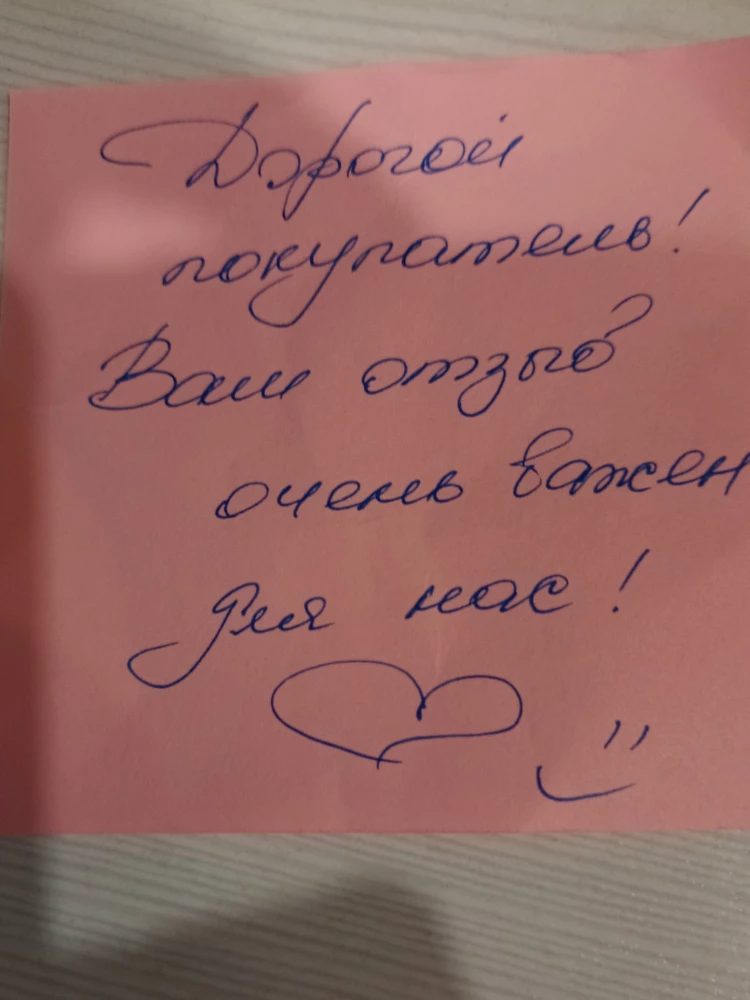 Дорогой
покупатель!
Ваш отзыв
очень важен
для нас!